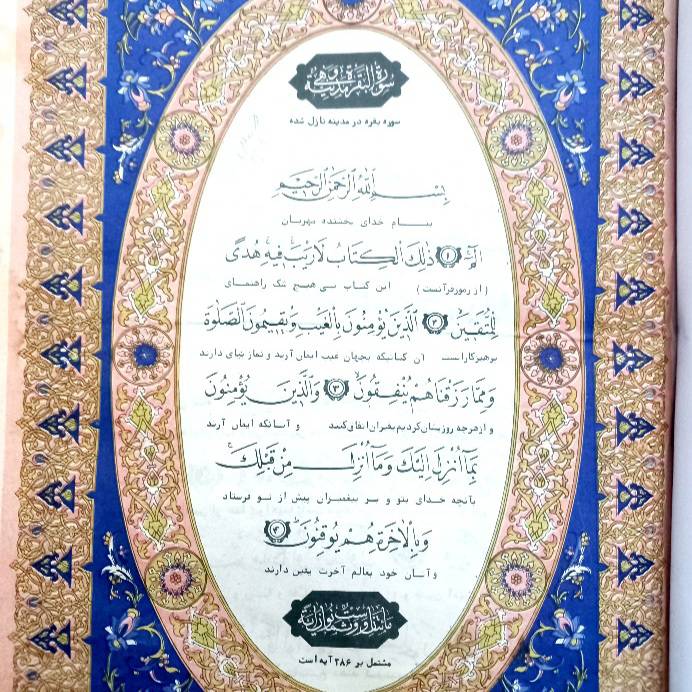 سورة البقرة وهی مدنیة
سوره بقره در مدینه نازل شده
بِسْمِ اللهِ الرَّحْمٰنِ الرَّحیمِ
بنام خدای بخشنده مهربان
الٓمٓ ۱ ذٰلِكَ الْكِتَابُ لَارَیْبَ فیهِ هُدًی
(از رموز قرآنست) این کتاب بی هیچ شک راهنمای
لِلْمُتَّقینَ ۲ اَلَّذینَ یُؤْمِنُونَ بِالْغَیْبِ وَیُقیمُونَ الصَّلٰوةَ
پرهیزکاران است آن کسانیکه بجهان غیب ایمان آرند و نماز بپای دارند
وَمِمَّا رَزَقْنَاهُمْ یُنْفِقُونَ ۳ وَالَّذینَ یُؤْمِنُونَ
و از هرچه روزیشان کردیم بفقیران انفاق کنند و آنانکه ایمان آرند
بِمَآ اُنْزِلَ اِلَیْكَ وَمَآ اُنْزِلَ مِنْ قَبْلِكَ
بآنچه خدای بتو و بر پیغمبران پیش از تو فرستاد
وَبِالْاٰخِرَةِ هُمْ یُوقِنُونَ ۴
و آنان خود بعالم آخرت یقین دارند
مائتان وست وثمانون آیة
مشتمل بر ۲۸۶ آیه است